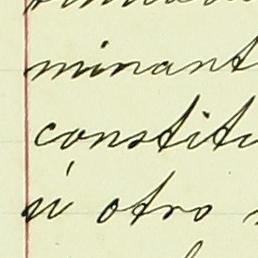 minant
constitu
ú otro